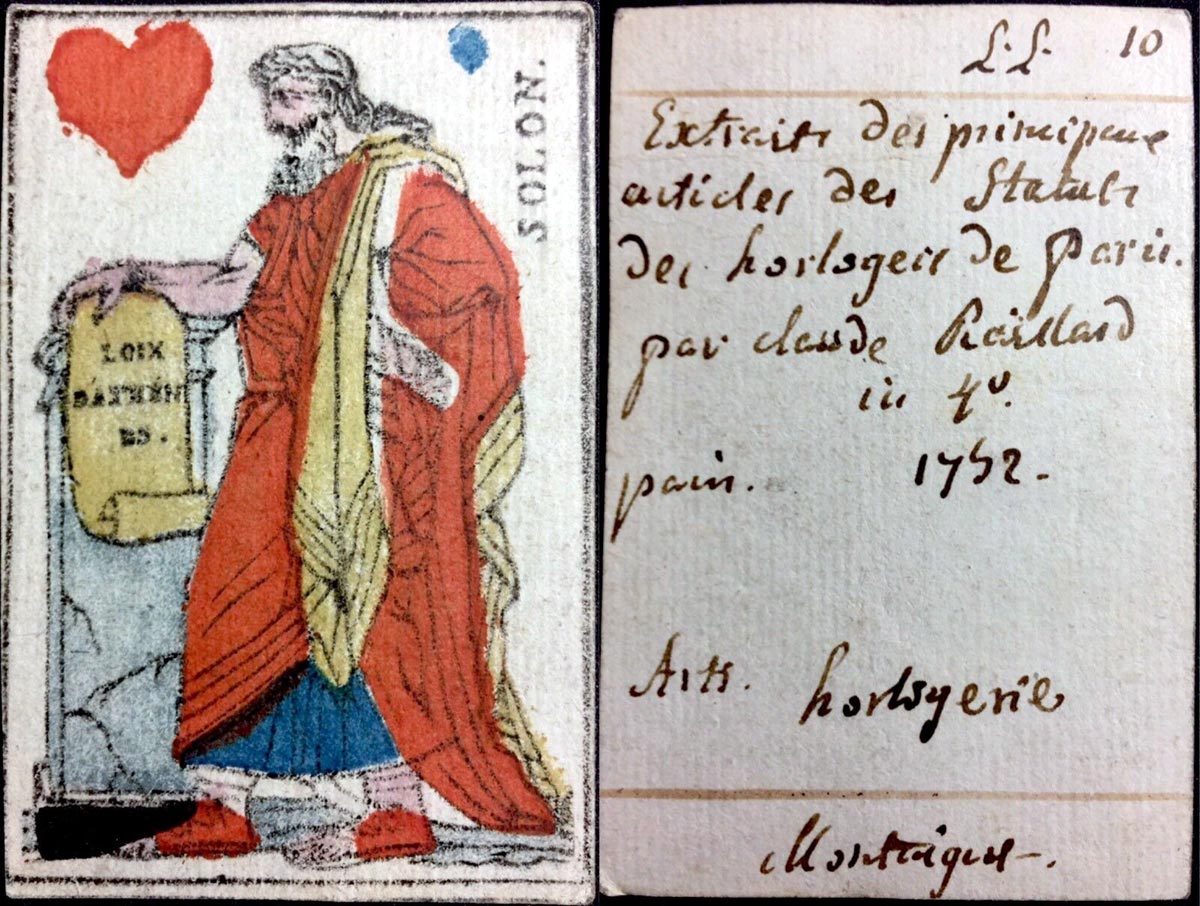 SOLON.
LOIX
D'ATHÈN
ES.
L.L. 10
Extraits des principaux
articles des Statuts
des horlogers de paris.
par claude Raillard
in 4°.
paris. 1752.
Arts. horlogerie
Montaigut.